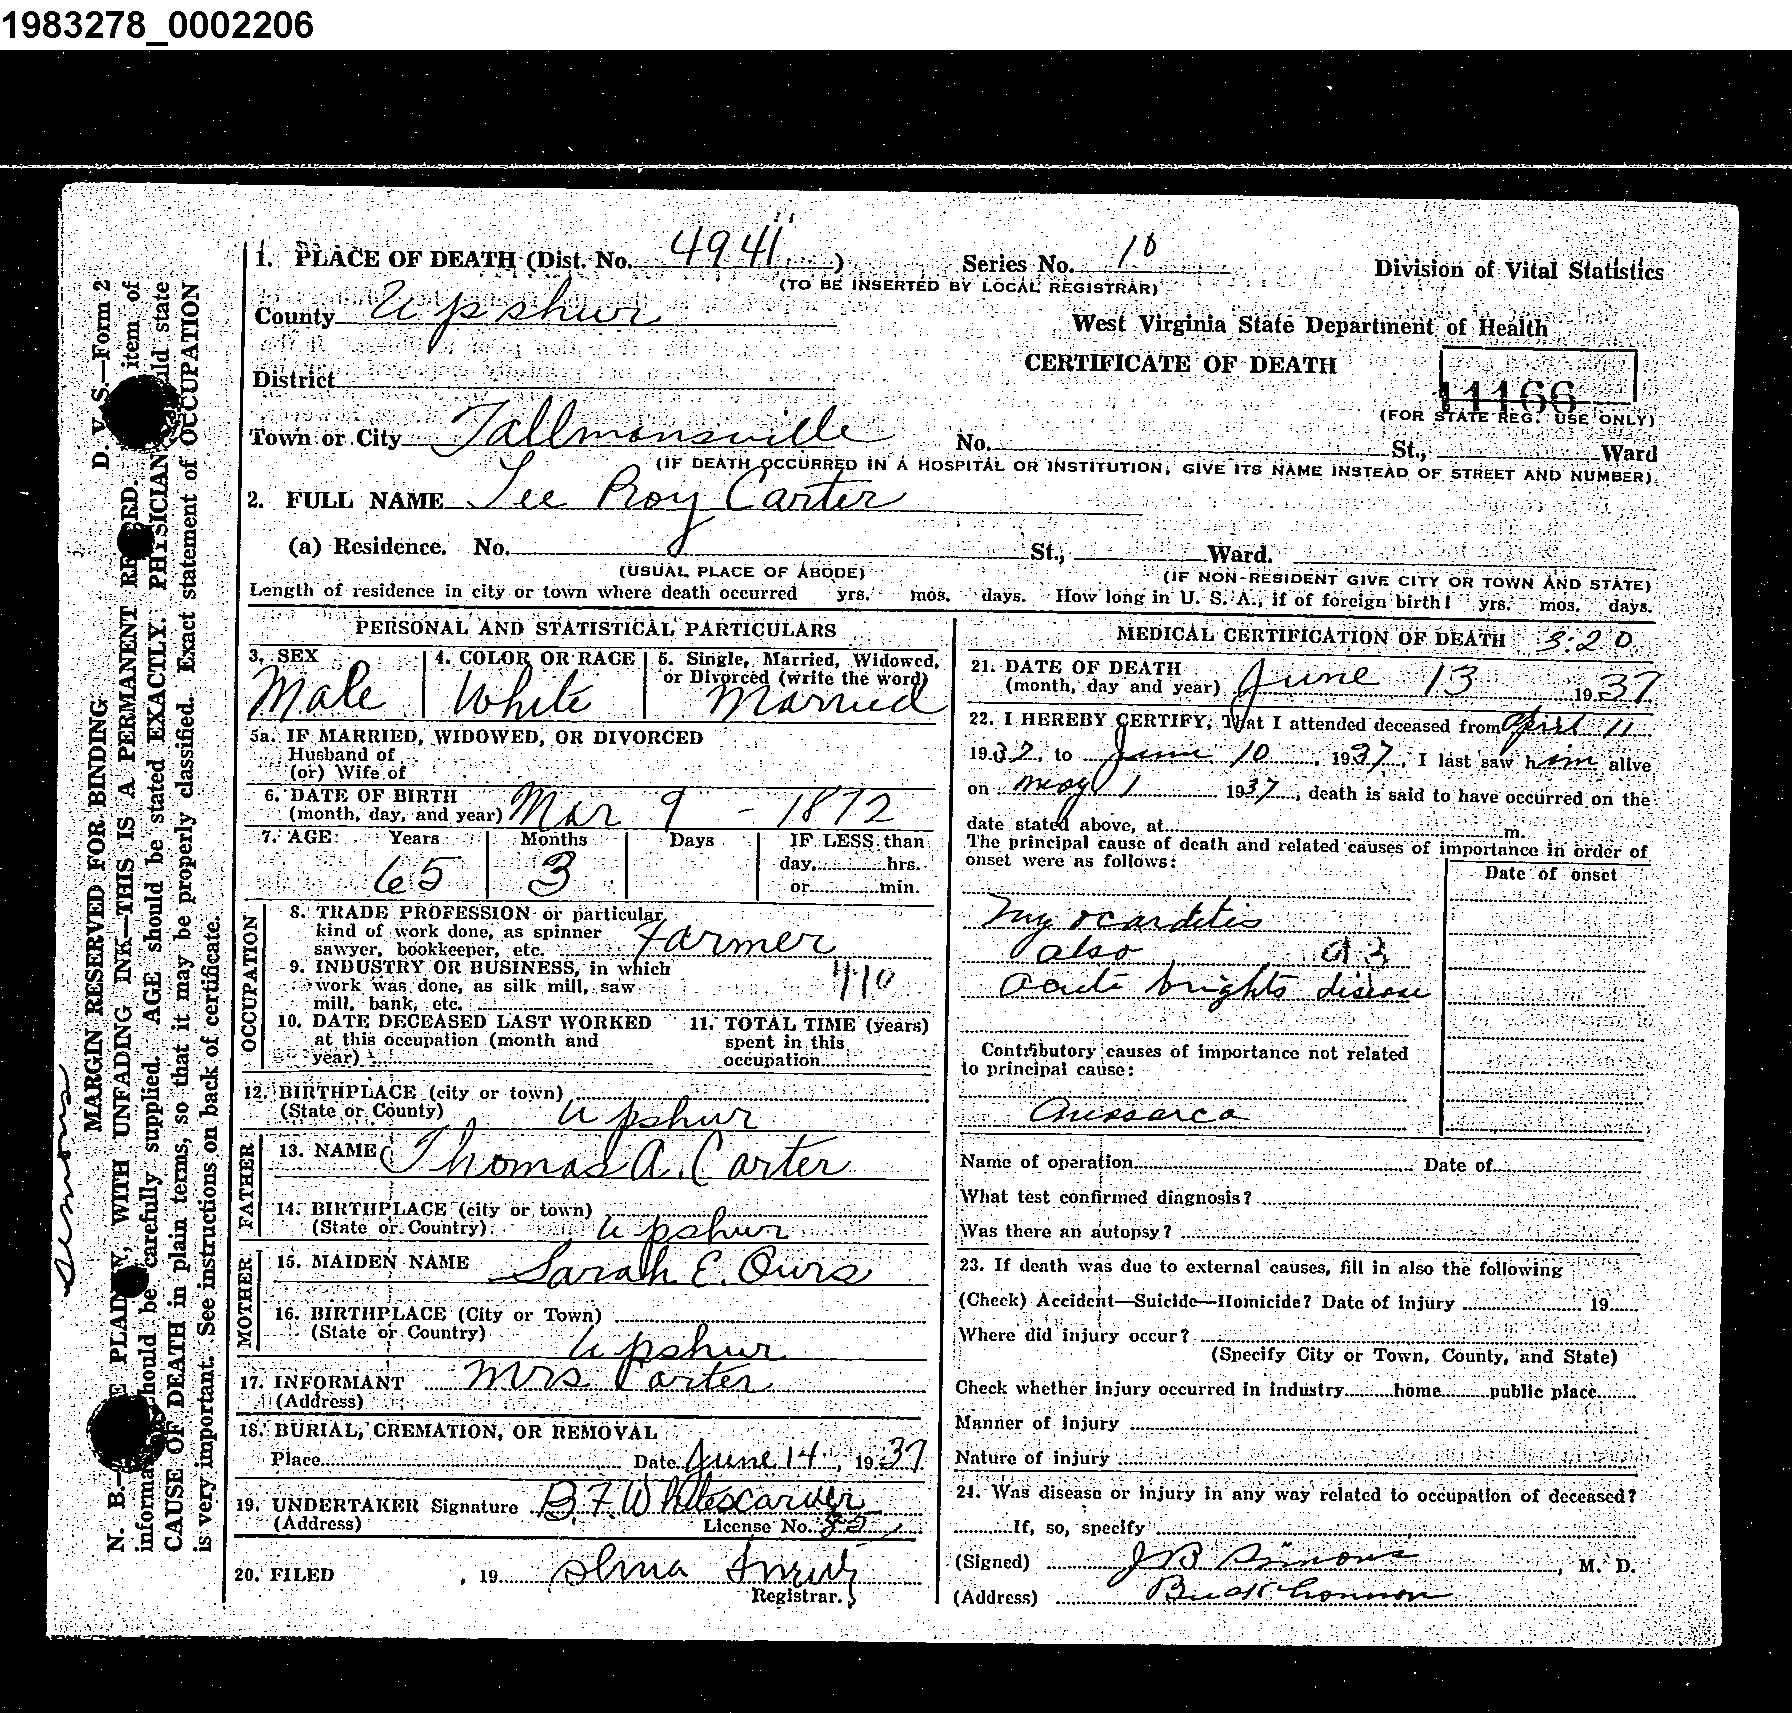 1983278_0002206
1. PLACE OF DEATH (Dist. No. 4941 ) Series No. 10 Division of Vital Statistics
(TO BE INSERTED BY LOCAL REGISTRAR)
County Upshur
West Virginia State Department of Health
CERTIFICATE OF DEATH
District
11166
(FOR STATE REG. USE ONLY)
Town or City Tallmansville No. St., Ward
(IF DEATH OCCURRED IN A HOSPITAL OR INSTITUTION, GIVE ITS NAME INSTEAD OF STREET AND NUMBER)
2. FULL NAME Lee Roy Carter
(a) Residence. No. St., Ward.
(USUAL PLACE OF ABODE) (IF NON-RESIDENT GIVE CITY OR TOWN AND STATE)
Length of residence in city or town where death occurred yrs. mos. days. How long in U. S. A., if of foreign birth? yrs. mos. days.
PERSONAL AND STATISTICAL PARTICULARS
3. SEX 4. COLOR OR RACE 5. Single, Married, Widowed,
or Divorced (write the word)
Male White Married
5a. IF MARRIED, WIDOWED, OR DIVORCED
Husband of
(or) Wife of
6. DATE OF BIRTH
(month, day, and year) Mar 9 - 1872
7. AGE Years Months Days IF LESS than
day, hrs.
65 3
or min.
OCCUPATION
8. TRADE PROFESSION or particular
kind of work done, as spinner
sawyer, bookkeeper, etc. Farmer
9. INDUSTRY OR BUSINESS, in which
work was done, as silk mill, saw
mill, bank, etc. 410
10. DATE DECEASED LAST WORKED
at this occupation (month and
year)
11. TOTAL TIME (years)
spent in this
occupation
12. BIRTHPLACE (city or town)
(State or County) Upshur
FATHER
13. NAME Thomas A. Carter
14. BIRTHPLACE (city or town)
(State or Country) Upshur
MOTHER
15. MAIDEN NAME Sarah E. Ours
16. BIRTHPLACE (City or Town)
(State or Country) Upshur
17. INFORMANT Mrs Carter
(Address)
18. BURIAL, CREMATION, OR REMOVAL
Place Date June 14, 1937
19. UNDERTAKER Signature B. F. Whitescarver
(Address) License No.
20. FILED , 19
Registrar.
MEDICAL CERTIFICATION OF DEATH 3:20
21. DATE OF DEATH
(month, day and year) June 13 1937
22. I HEREBY CERTIFY, That I attended deceased from April 11
1937, to June 10, 1937, I last saw him alive
on May 1 1937, death is said to have occurred on the
date stated above, at m.
The principal cause of death and related causes of importance in order of
onset were as follows:
Date of onset
Myocarditis
also 93
acute brights disease
Contributory causes of importance not related
to principal cause:
Anasarca
Name of operation Date of
What test confirmed diagnosis?
Was there an autopsy?
23. If death was due to external causes, fill in also the following
(Check) Accident—Suicide—Homicide? Date of injury 19
Where did injury occur?
(Specify City or Town, County, and State)
Check whether injury occurred in industry home public place
Manner of injury
Nature of injury
24. Was disease or injury in any way related to occupation of deceased?
If, so, specify
(Signed) J B Simons, M. D.
(Address) Buckhannon
D. V. S.—Form 2
MARGIN RESERVED FOR BINDING
N. B.— PLAINLY, WITH UNFADING INK—THIS IS A PERMANENT RECORD. item of
should be carefully supplied. AGE should be stated EXACTLY. PHYSICIAN should state
CAUSE OF DEATH in plain terms, so that it may be properly classified. Exact statement of OCCUPATION
is very important. See instructions on back of certificate.
Simons